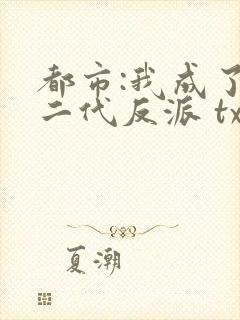 都市:我成了
二代反派 tx
夏潮